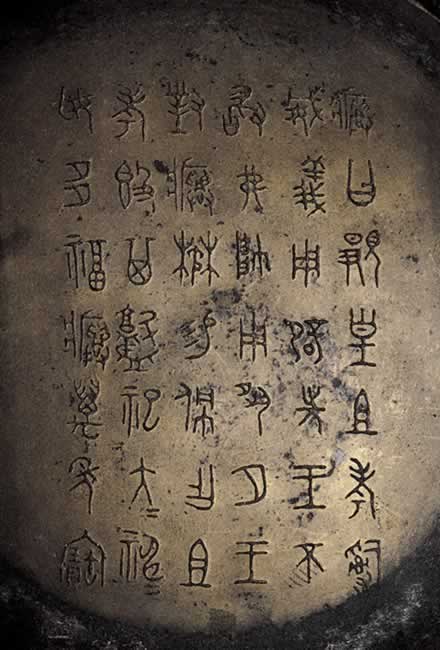 𤼈曰覭皇且考𤔲
威義用辟先王不
敢弗帥用夙夕王
對𤼈楙易佩乍且
考簋其盩祀大=神=
妥多福𤼈萬年寶